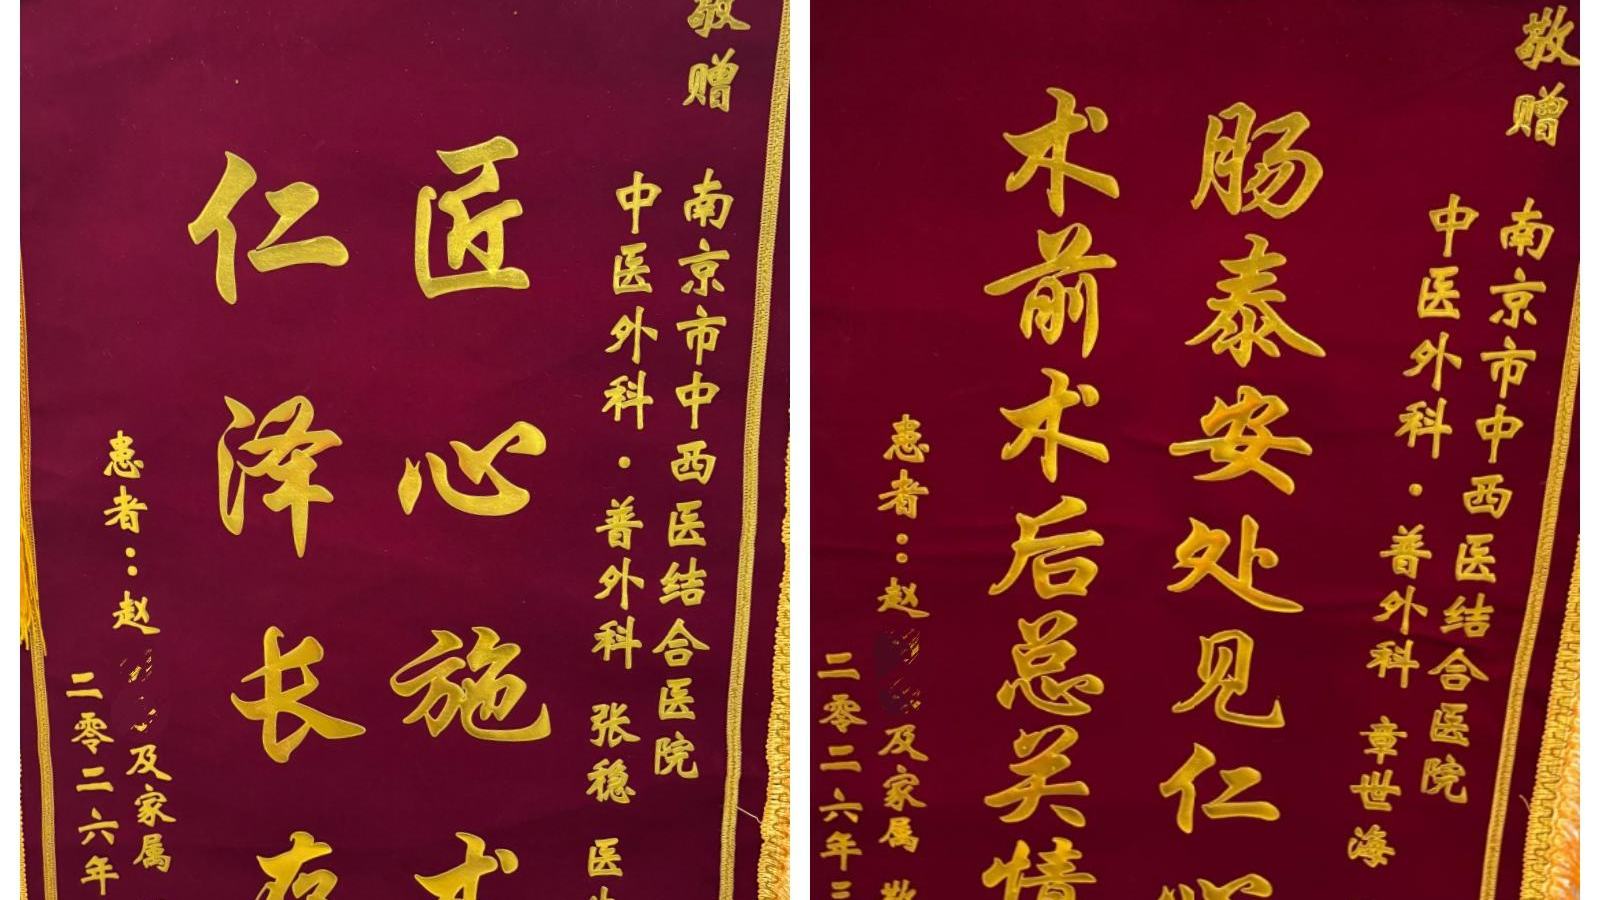 敬赠
南京市中西医结合医院
中医外科·普外科 张稳 医
匠心施术
仁泽长存
患者：赵
及家属
二零二六年
敬赠
南京市中西医结合医院
中医外科·普外科 章世海
肠泰安处见仁心
术前术后总关情
患者：赵
及家属 敬
二零二六年